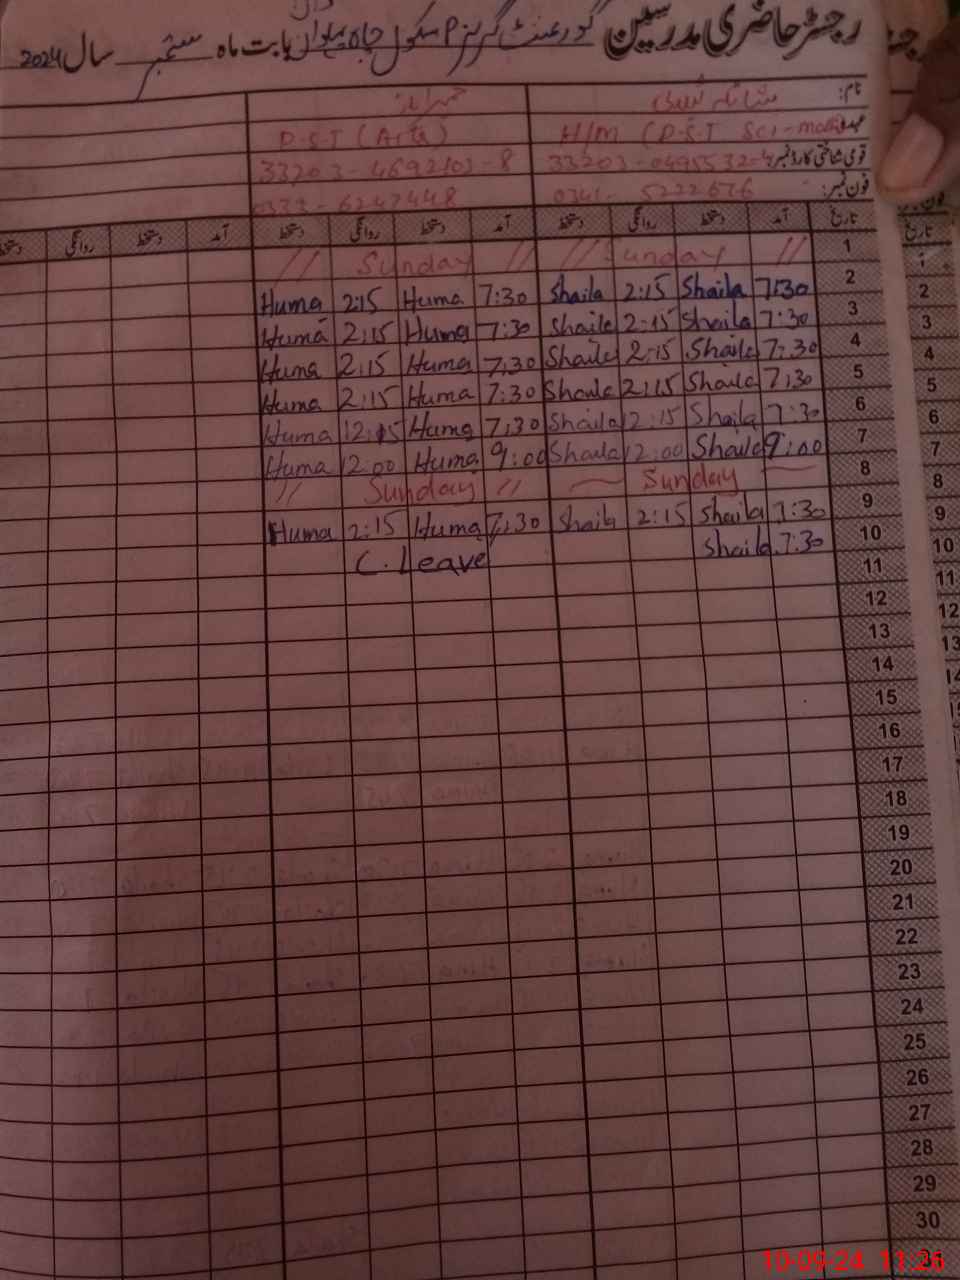 رجسٹر حاضری مدرسین گورنمنٹ گرلز P سکول چاہ پہلوان بابت ماہ ستمبر سال 2024
نام: شائلہ
عہدہ: H/M (P.S.T Sci-math) P.S.T (Arts)
قومی شناختی کارڈ نمبر: 33203-0495532-4 33203-4692103-8
فون نمبر: 0341-5222676 0333-6247448
تاریخ آمد دستخط روانگی دستخط آمد دستخط روانگی دستخط آمد دستخط روانگی دستخط
1 // Sunday // // Sunday //
2 7:30 Shaila 2:15 Shaila 7:30 Huma 2:15 Huma
3 7:30 Shaila 2:15 Shaila 7:30 Huma 2:15 Huma
4 7:30 Shaila 2:15 Shaila 7:30 Huma 2:15 Huma
5 7:30 Shaila 2:15 Shaila 7:30 Huma 2:15 Huma
6 7:30 Shaila 12:15 Shaila 7:30 Huma 12:15 Huma
7 9:00 Shaila 12:00 Shaila 9:00 Huma 12:00 Huma
8 Sunday // Sunday //
9 7:30 Shaila 2:15 Shaila 7:30 Huma 2:15 Huma
10 7:30 Shaila C. Leave
11
12
13
14
15
16
17
18
19
20
21
22
23
24
25
26
27
28
29
30
10-09-24 11:26